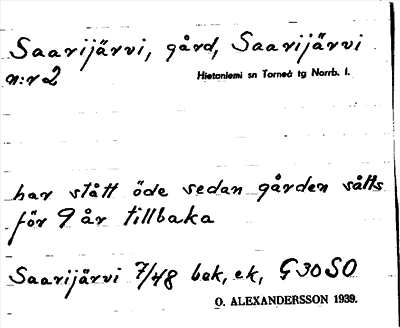 Saarijärvi, gård, Saarijärvi
n:r 2 Hietaniemi sn Torneå tg Norrb. l.
har stått öde sedan gården såtts
för 9 år tillbaka
Saarijärvi 7/48 bak, ek, G30SO
O. ALEXANDERSSON 1939.